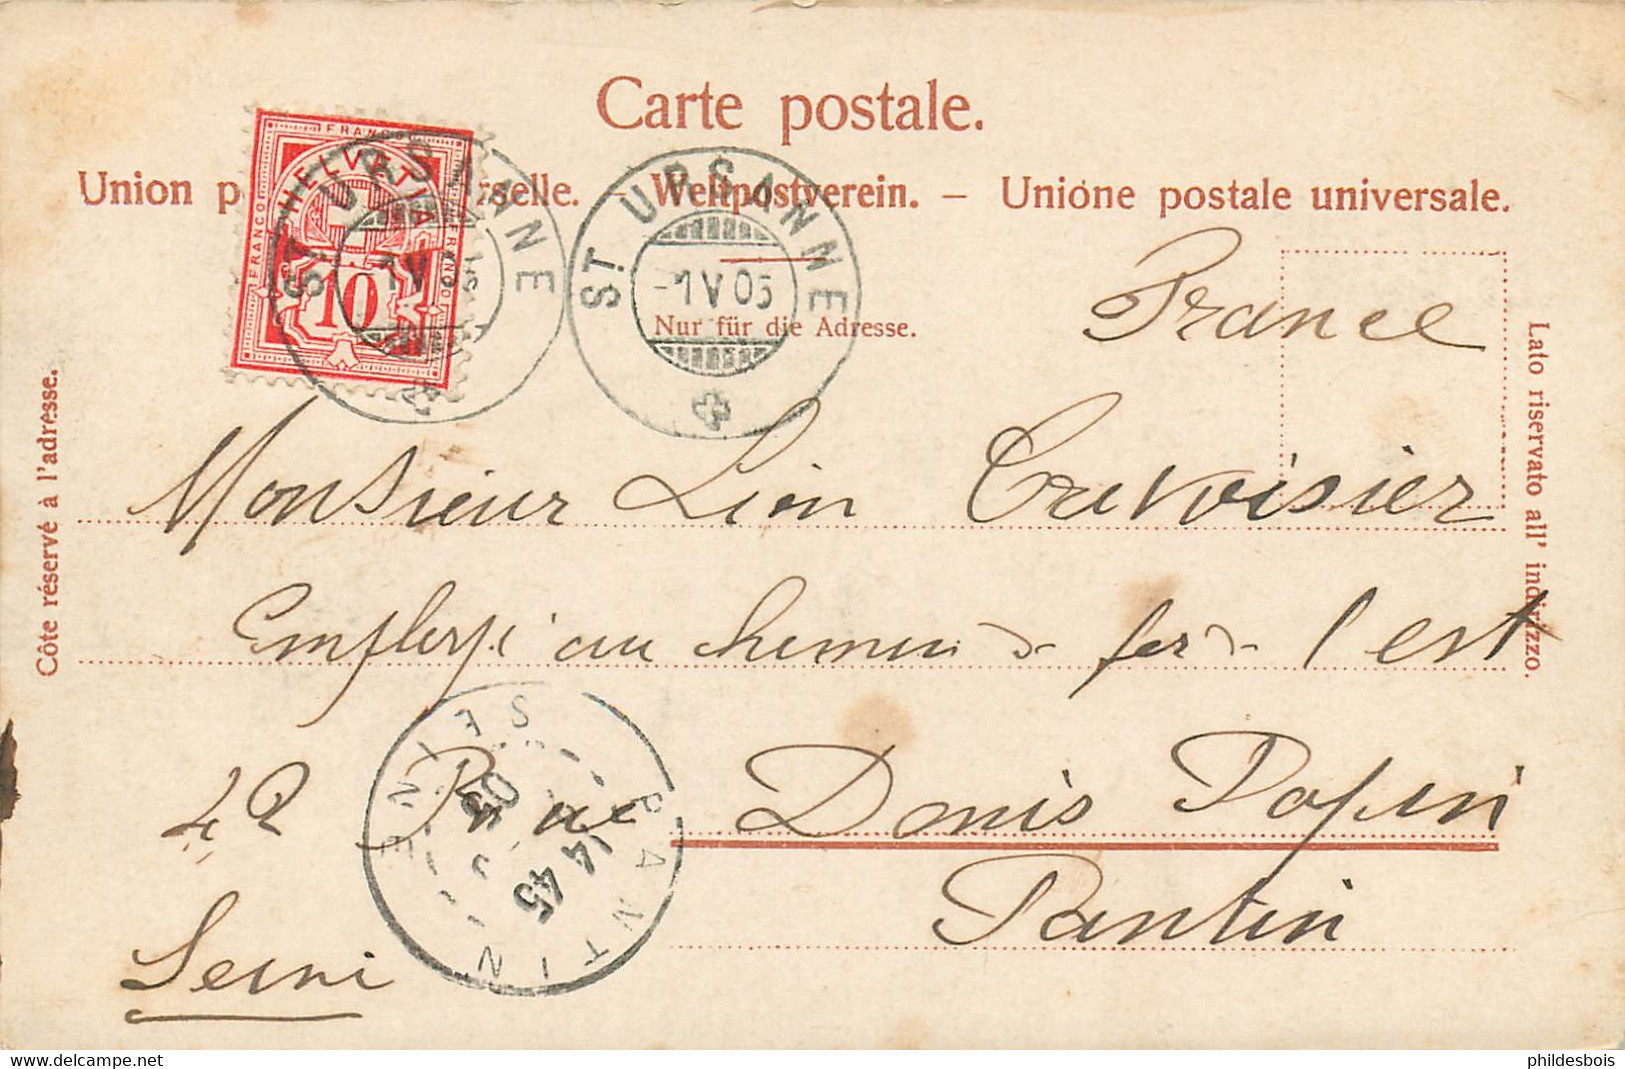 Carte postale.
Union p rselle. – Weltpostverein. – Unióne postale universale.
FRANCO
HELVETIA
FRANCO
10
ST URSANNE
1 V 05
ST URSANNE
-1 V 05
Nur für die Adresse.
France
Côte réservé à l'adresse.
Lato riservato all' indirizzo.
Monsieur Léon Crevoisier
Employé au chemin de fer de l'est
42 Rue Denis Papin
Pantin
Seine
PANTIN
SEINE
14 45
05
delcampe.net
phildesbois